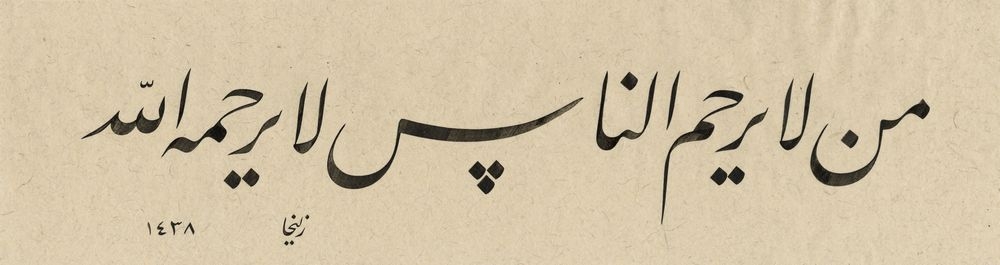 من لا يرحم الناس لا يرحمه الله
زليخا ١٤٣٨